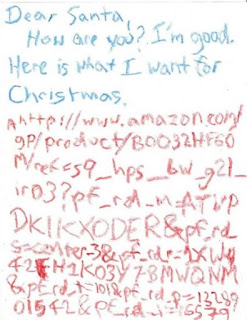 Dear Santa,
How are you? I'm good.
Here is what I want for
Christmas.
http://www.amazon.com/
gp/product/B0032HF60
M/ref=s9_hps_bw_g21_
ir03?pf_rd_m=ATVP
DKIKX0DER&pf_rd_
s=center-3&pf_rd_r=1XWY
42EH1K03Y78MWQNM
&pf_rd_t=101&pf_rd_p=13289
01542&pf_rd_i=16579